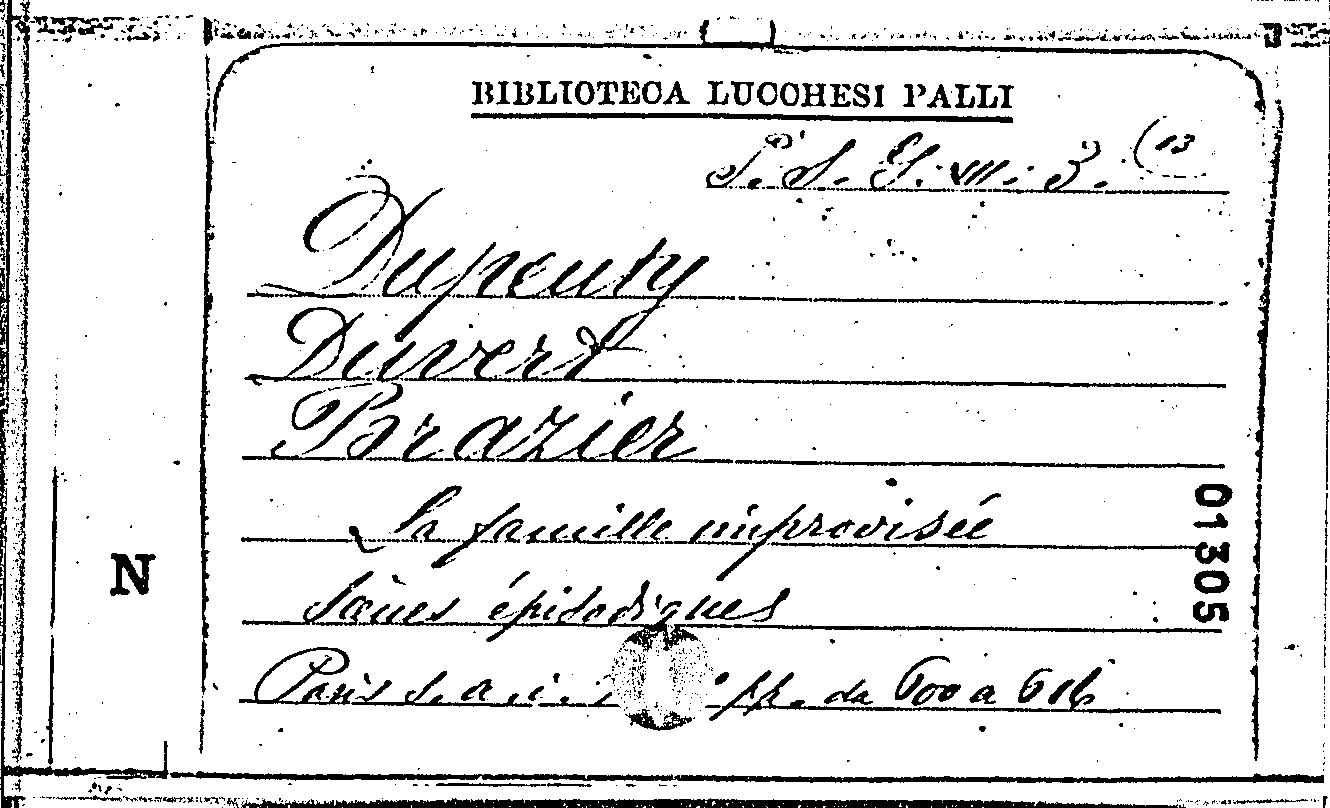 BIBLIOTECA LUCCHESI PALLI
P. S. G. VIII. 3. (13
Dupeuty
Duvert
Brazier
La famille improvisée
Scènes épisodiques
Paris s. a. i. pp. da 600 a 616
N
01305